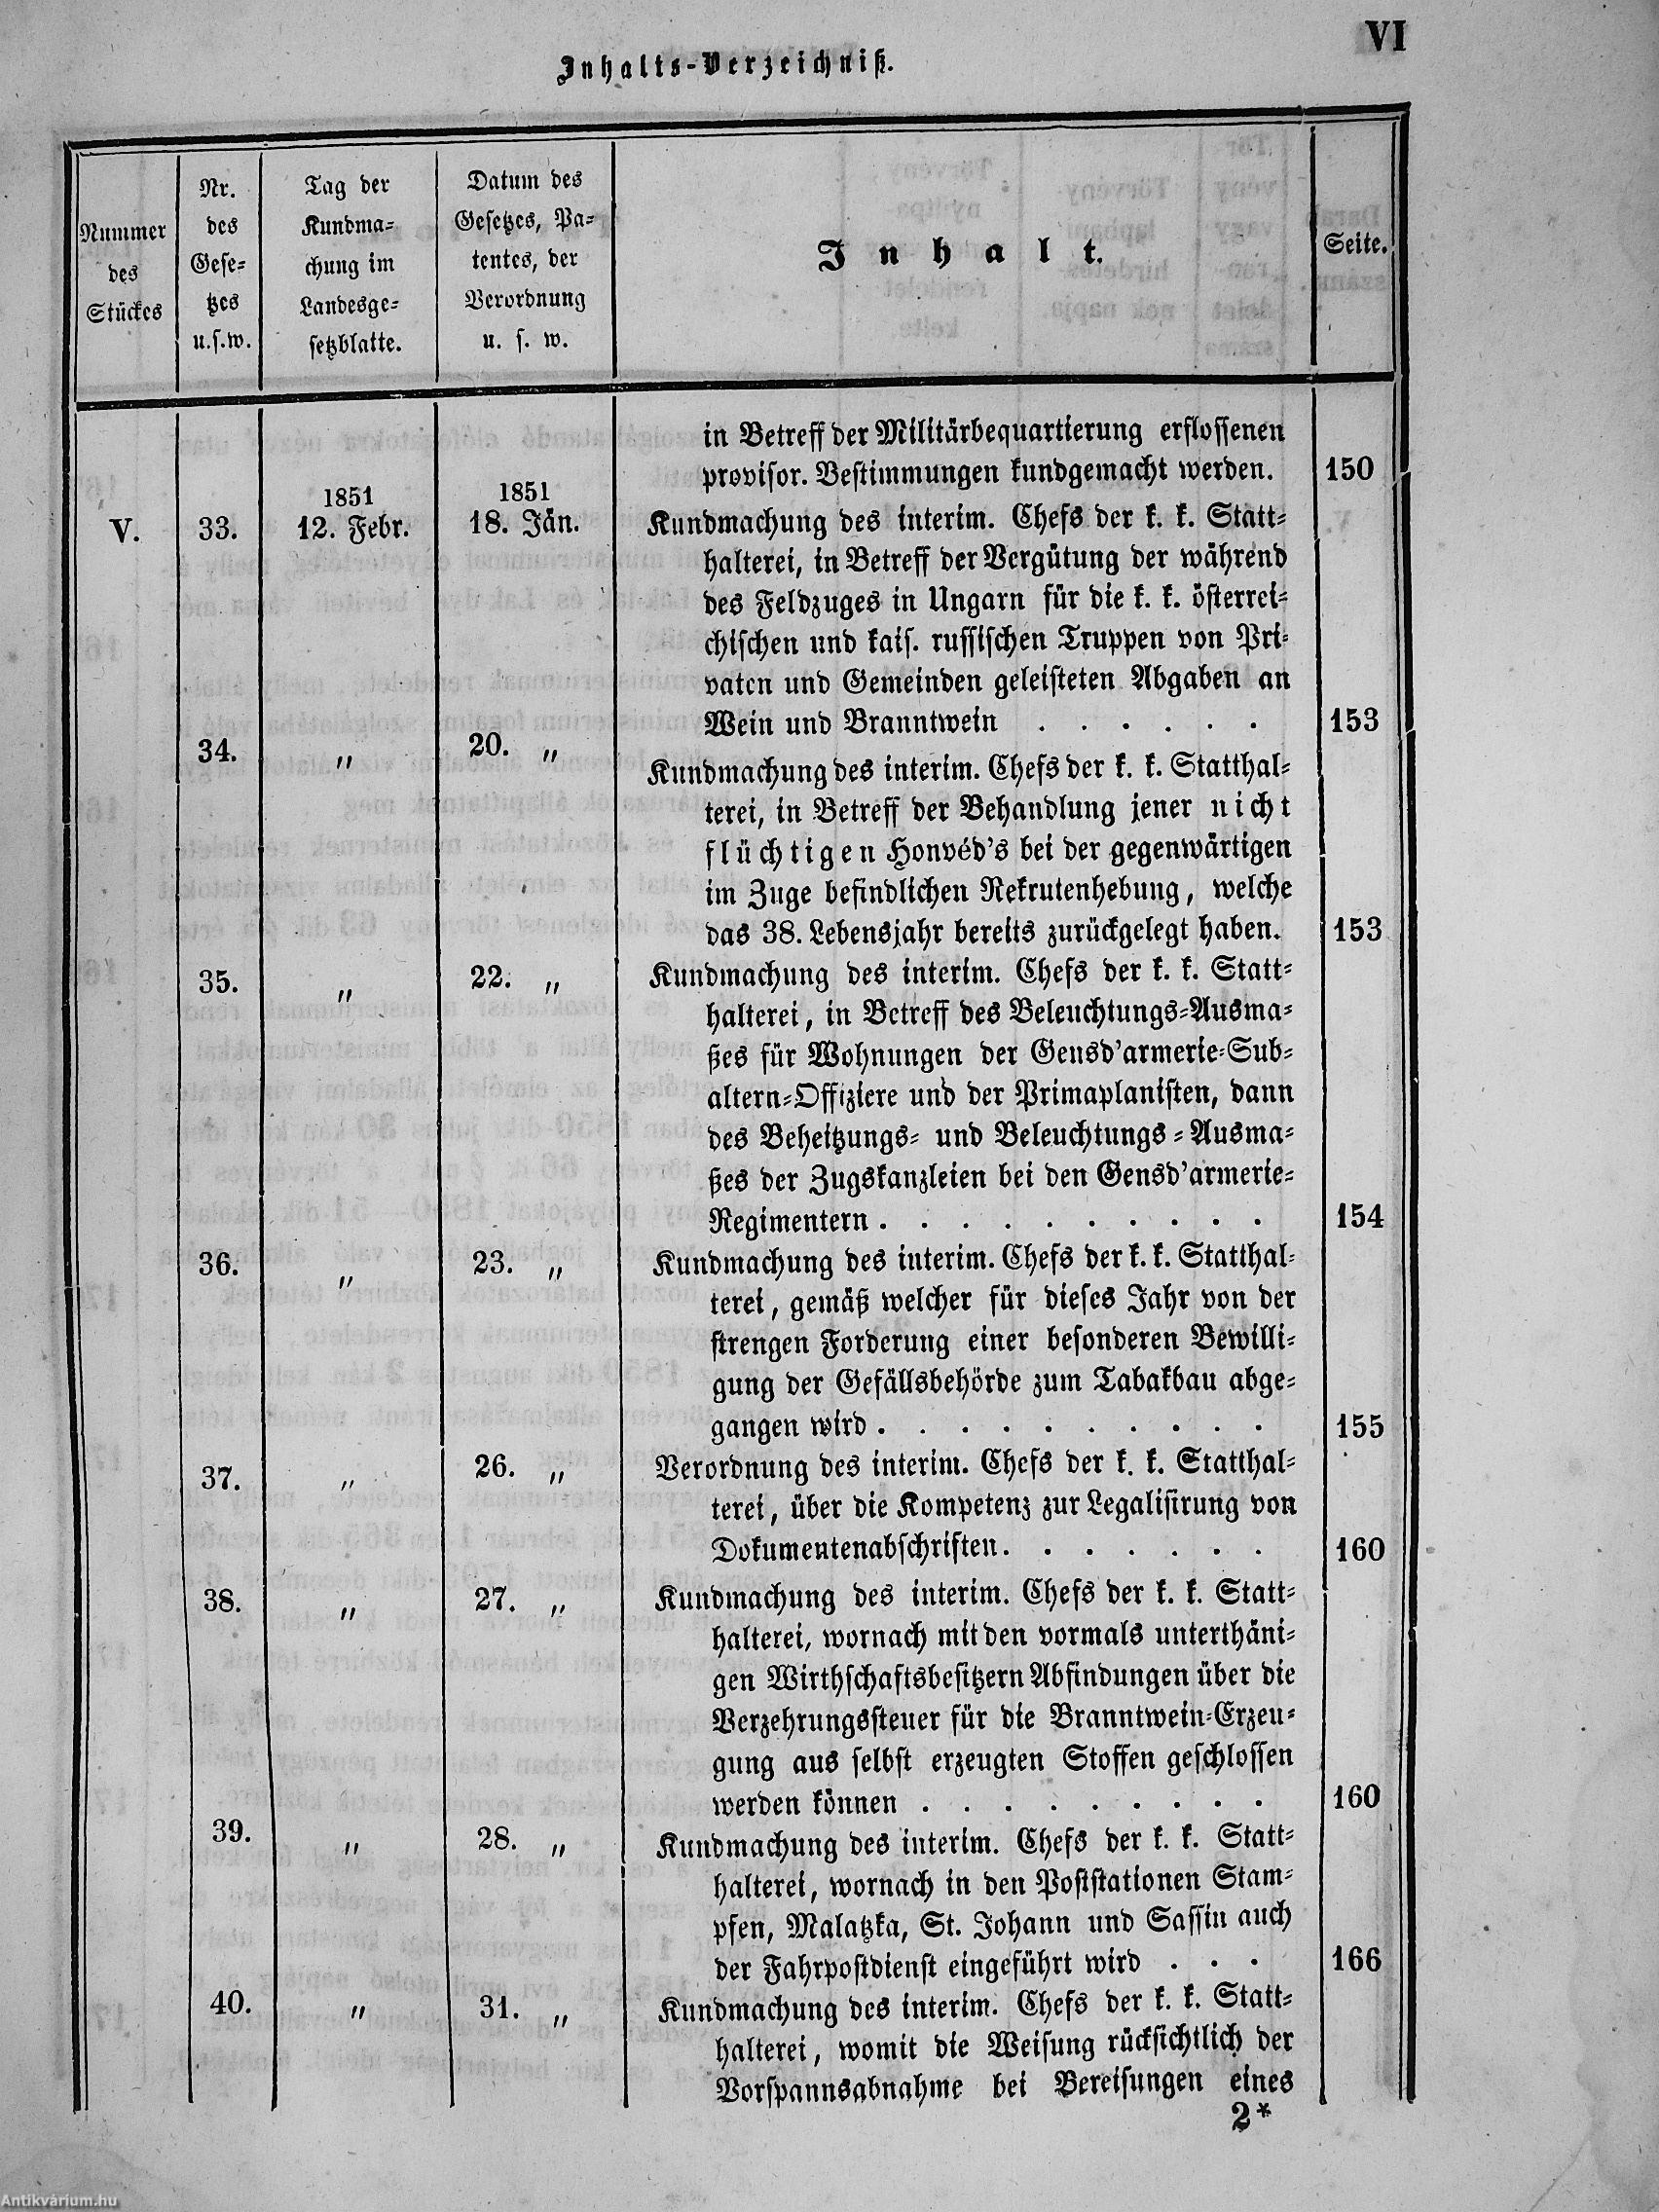 VI
Inhalts-Verzeichniß.
Nummer
des
Stückes
Nr.
des
Gese-
tzes
u.s.w.
Tag der
Kundma-
chung im
Landesge-
setzblatte.
Datum des
Gesetzes, Pa-
tentes, der
Verordnung
u. s. w.
Inhalt.
Seite.
in Betreff der Militärbequartierung erflossenen
provisor. Bestimmungen kundgemacht werden. 150
1851 1851
V. 33. 12. Febr. 18. Jän. Kundmachung des interim. Chefs der k. k. Statt-
halterei, in Betreff der Vergütung der während
des Feldzuges in Ungarn für die k. k. österrei-
chischen und kais. russischen Truppen von Pri-
vaten und Gemeinden geleisteten Abgaben an
Wein und Branntwein . . . . . . 153
34. " 20. " Kundmachung des interim. Chefs der k. k. Statthal-
terei, in Betreff der Behandlung jener nicht
flüchtigen Honvéd's bei der gegenwärtigen
im Zuge befindlichen Rekrutenhebung, welche
das 38. Lebensjahr bereits zurückgelegt haben. 153
35. " 22. " Kundmachung des interim. Chefs der k. k. Statt-
halterei, in Betreff des Beleuchtungs-Ausma-
ßes für Wohnungen der Gensd'armerie-Sub-
altern-Offiziere und der Primaplanisten, dann
des Beheitzungs- und Beleuchtungs-Ausma-
ßes der Zugskanzleien bei den Gensd'armerie-
Regimentern . . . . . . . . . . 154
36. " 23. " Kundmachung des interim. Chefs der k. k. Statthal-
terei, gemäß welcher für dieses Jahr von der
strengen Forderung einer besonderen Bewilli-
gung der Gefällsbehörde zum Tabakbau abge-
gangen wird . . . . . . . . . . 155
37. " 26. " Verordnung des interim. Chefs der k. k. Statthal-
terei, über die Kompetenz zur Legalisirung von
Dokumentenabschriften . . . . . . . 160
38. " 27. " Kundmachung des interim. Chefs der k. k. Statt-
halterei, wornach mit den vormals unterthäni-
gen Wirthschaftsbesitzern Abfindungen über die
Verzehrungssteuer für die Branntwein-Erzeu-
gung aus selbst erzeugten Stoffen geschlossen
werden können . . . . . . . . . 160
39. " 28. " Kundmachung des interim. Chefs der k. k. Statt-
halterei, wornach in den Poststationen Stam-
pfen, Malatzka, St. Johann und Sassin auch
der Fahrpostdienst eingeführt wird . . . 166
40. " 31. " Kundmachung des interim. Chefs der k. k. Statt-
halterei, womit die Weisung rücksichtlich der
Vorspannsabnahme bei Bereisungen eines
2*
Antikvárium.hu